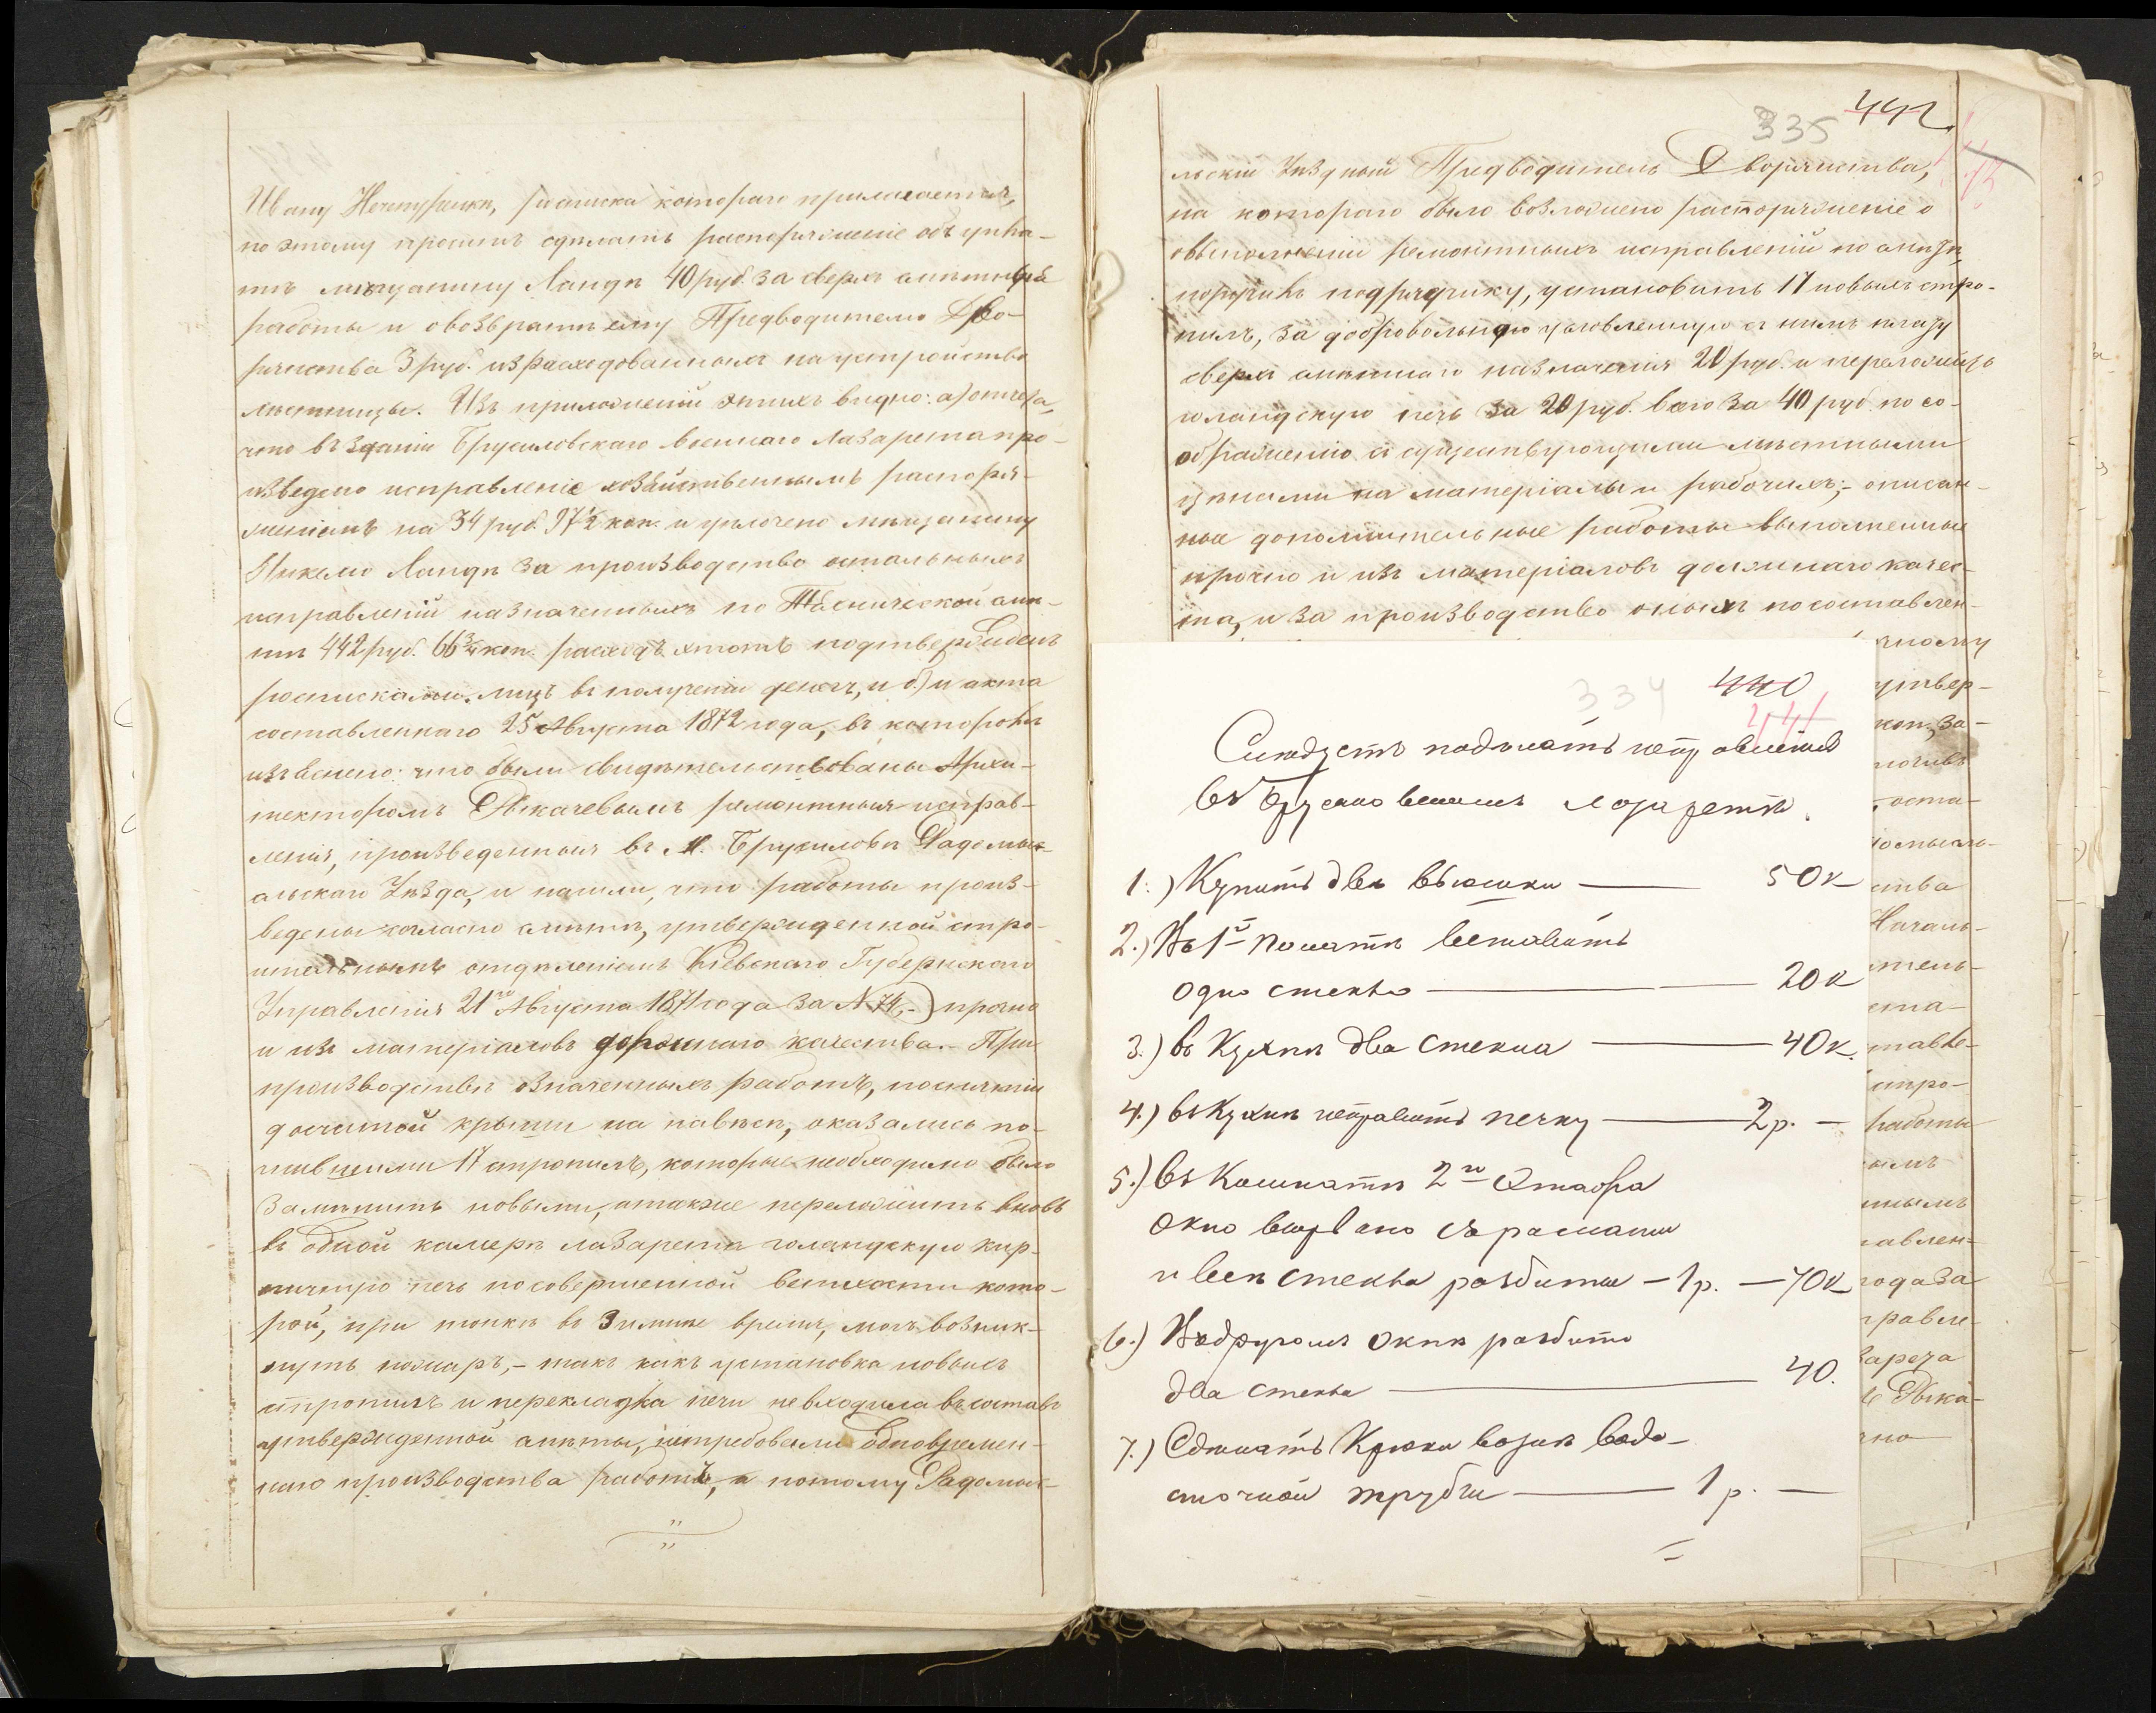 Ивану Нечипуренки, росписка котораго прилагается,
по этому просить сдѣлать распоряженіе объ упла-
тѣ мѣщанину Ландѣ 40 руб. за сверхъ смѣтныя
работы и о возвратѣ ему Предводителю Дво-
рянства 3 руб. израсходованныхъ на устройство
лѣстницы. Изъ приложеній этихъ видно: а) отчета,
что въ зданіи Брусиловскаго военнаго лазарета про-
изведено исправленіе хозяйственнымъ распоря-
женіемъ на 34 руб. 97½ коп. и уплочено мѣщанину
Ландѣ за производство остальныхъ
исправленій назначенныхъ по Технической смѣ-
тѣ 442 руб. 66¾ коп. расходъ этотъ подтвержденъ
росписками лицъ въ полученіи денегъ, и б) и акта
составленнаго 25 Августа 1872 года, въ которомъ
изъяснено: что были свидѣтельствованы Архи-
текторомъ ремонтныя исправ-
ленія, произведенныя въ М. Брусиловѣ Радомы-
сльскаго Уѣзда, и нашли, что работы произ-
ведены согласно смѣтѣ, утвержденной стро-
ительнымъ отдѣленіемъ Кіевскаго Губернскаго
Управленія 21го Августа 1871 года за N 74,-) прочно
и изъ матеріаловъ качества.- При
производствѣ означенныхъ работъ, по снятіи
досчатой крыши на навѣсѣ, оказались по-
гнившими 17 стропилъ, которые необходимо было
замѣнить новыми, а также переложить вновь
въ одной камерѣ лазарета голандскую кир-
пичную печь по совершенной ветхости кото-
рой, при топкѣ въ зимнее время, могъ возник-
нуть пожаръ,- такъ какъ установка новыхъ
стропилъ и перекладка печи не входила въ составъ
утвержденной смѣты, и требовали одновремен-
наго производства работъ, а потому Радомыс-
442
335
льскій Уѣздный Предводитель Дворянства,
на котораго было возложено распоряженіе о
выполненіи ремонтныхъ исправленій по смѣтѣ,
поручилъ подрядчику, установить 17 новыхъ стро-
пилъ, за добровольную условленную съ нимъ плату
сверхъ смѣтнаго назначенія 20 руб. и переложить
голандскую печь за 20 руб. всего за 40 руб. по со-
ображенію съ существующими мѣстными
цѣнами на матеріалы и рабочихъ;- описан-
ные дополнительные работы выполнены
прочно и изъ матеріаловъ должнаго качес-
тва, и за производство оныхъ по составлен-
334
440
441
Слѣдуетъ подѣлать исправленія
въ Брусиловскомъ лазаретѣ.
1.) Купить двѣ вьюшки — 50 к
2.) Въ 1й полатѣ вставить
одно стекло — 20 к
3.) въ Кухнѣ два стекла — 40 к.
4.) въ Кухнѣ исправить печку — 2 р. —
5.) въ Комнатѣ 2го Этажа
окно вырвано съ рамами
и всѣ стекла разбиты — 1 р. — 70 к
6.) Въ другомъ окнѣ разбито
два стекла — 40.
7.) Сдѣлать Крюки возлѣ водо-
сточной трубы — 1 р. —
чному
утвер-
коп. за-
ства
Началь-
стро-
работы
авлен-
года за